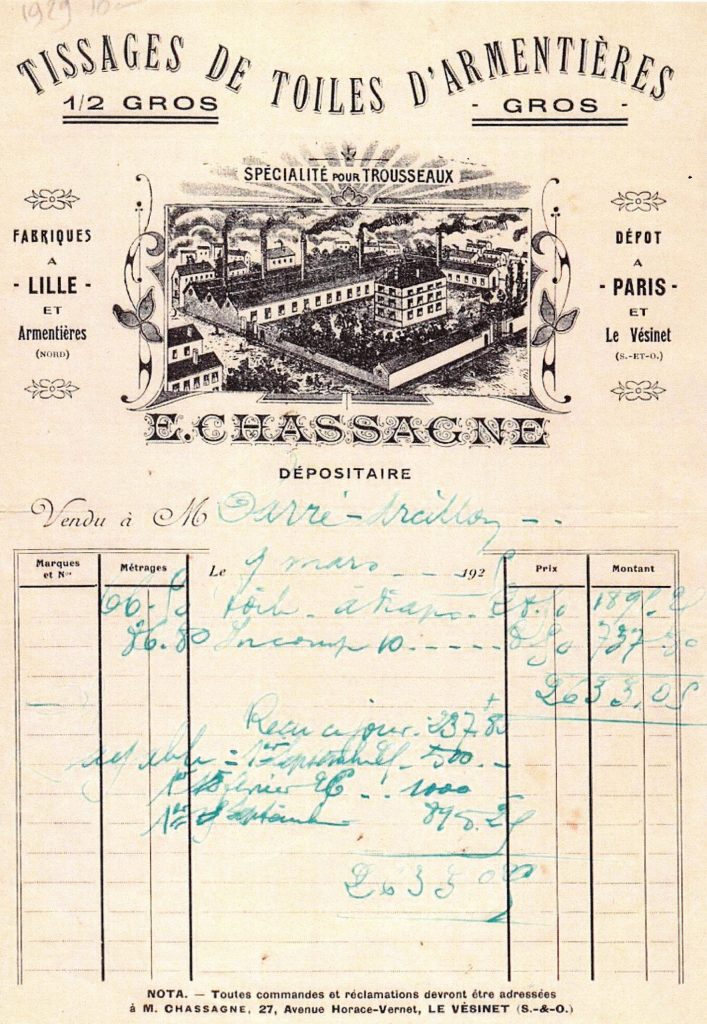 1929 10
TISSAGES DE TOILES D'ARMENTIÈRES
1/2 GROS - GROS -
SPÉCIALITÉ POUR TROUSSEAUX
FABRIQUES
A
- LILLE -
ET
Armentières
(NORD)
DÉPOT
A
- PARIS -
ET
Le Vésinet
(S.-ET-O.)
E. CHASSAGNE
DÉPOSITAIRE
Vendu à M
Marques et Nos Métrages Le 9 mars 192 Prix Montant
66.50 toile à draps 28.50
86.80 10 8.50 737.80
2633.05
Recu à jour 237.80
payable = 1er Septembre 500
1er février 26 1000
1er Septembre 895.25
2633.05
NOTA. — Toutes commandes et réclamations devront être adressées
à M. CHASSAGNE, 27, Avenue Horace-Vernet, LE VÈSINET (S.-&-O.)